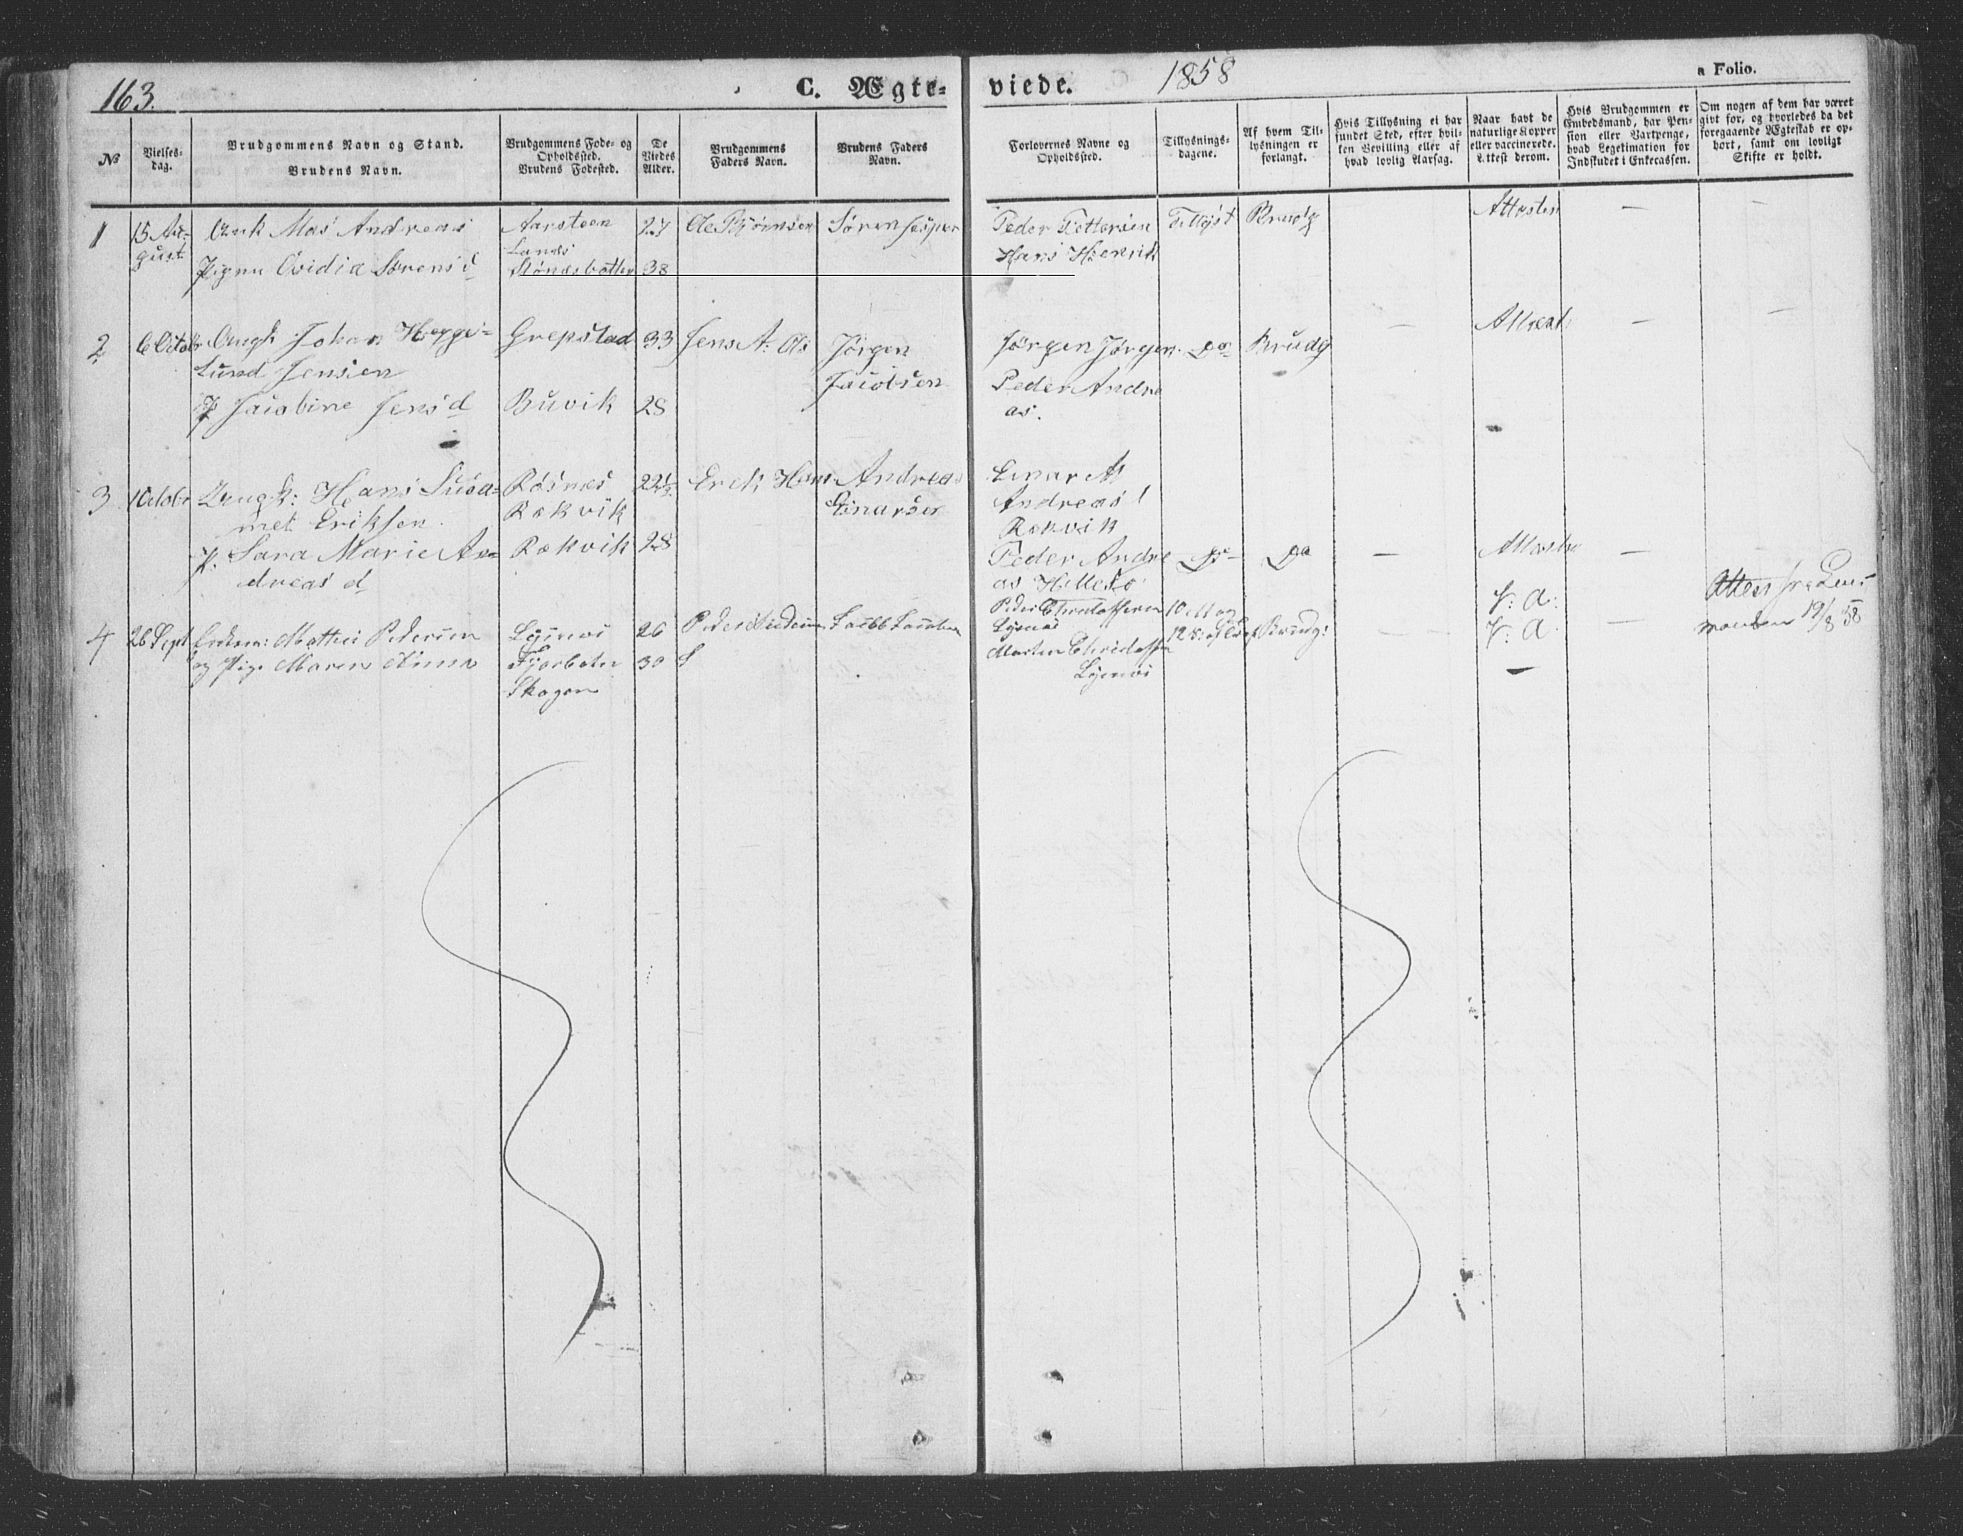 163.
C. Ægte-
viede.
1858
a Folio.
No
Vielses-
dag.
Brudgommens Navn og Stand.
Brudens Navn.
Brudgommens Føde- og
Opholdssted.
Brudens Fødested.
De
Viedes
Alder.
Brudgommens
Faders Navn.
Brudens Faders
Navn.
Forlovernes Navne og
Opholdssted.
Tillysnings-
dagene.
Af hvem Til-
lysningen er
forlangt.
Hvis Tillysning ei har
fundet Sted, efter hvil-
ken Bevilling eller af
hvad lovlig Aarsag.
Naar havt de
naturlige Kopper
eller vaccinerede.
Attest derom.
Hvis Brudgommen er
Embedsmand, har Pen-
sion eller Vartpenge,
hvad Legitimation for
Indskud i Enkecassen.
Om nogen af dem har været
gift før, og hvorledes da det
foregaaende Ægteskab er op-
hørt, samt om lovligt
Skifte er holdt.
1
15 Au-
gust
Mas Andreas
Pigen Ovidia Sørens d
Aarsteen
Stønæsbotten
27
38
Ole Bjørnsen
Søren Jesper
Peder Pettersen
Hans Henrik
Tillyst
Brudg
Attesten
—
—
2
6 Octobr
Ungk Johan Hegge-
lund Jensen
P Jacobine Jens d
Grepstad
Buvik
33
28
Jens A. Ols
Jørgen
Jacobsen
Jørgen Jørgen
Peder Andre
as.
Do
Brudg
—
Attest
—
—
3
1 Octobr
Ungk: Hans Susa-
met Eriksen
P. Sara Marie An-
dreas d
Røsnes
Rækvik
Rækvik
22 1/2
28
Erek Hans
Andreas
Einarsen
Einar A
Andreas
Rækvik
Peder Andre
as Hillesø
Do
Do
—
Attesten
—
4
26 Sept
Mathis Pedersen
og Pige Maren Anna
Lysnes
Fjorboten
Skogen
26
30
Jacob Jacobsen
Peder Christoffersen
Lysnæs
Martin Christoffer
Lysnes
10
12
Brudg:
—
—
V: A:
V: A:
—
—
Attest fra Lens
manden 19/8 58